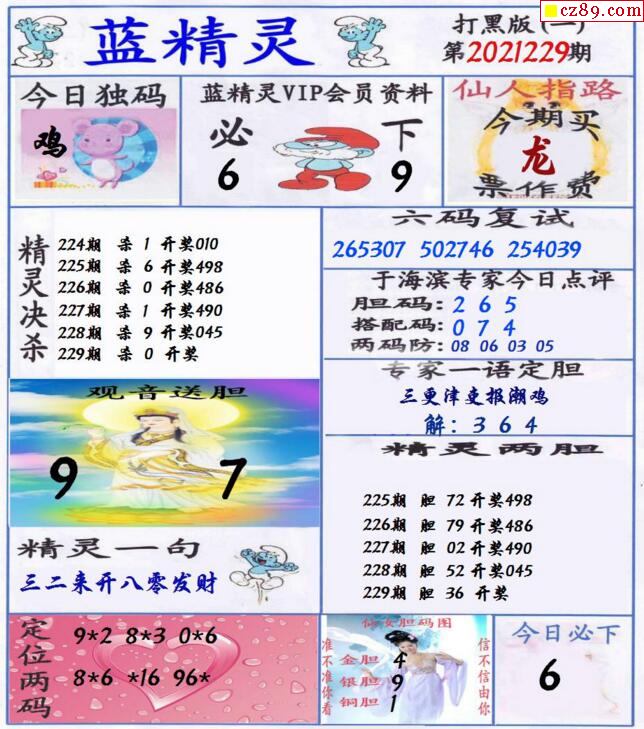 cz89.com
蓝精灵
打黑版(一)
第2021229期
今日独码
鸡
蓝精灵VIP会员资料
必 下
6 9
仙人指路
今期买
龙
票作费
精灵决杀
224期 杀 1 开奖010
225期 杀 6 开奖498
226期 杀 0 开奖486
227期 杀 1 开奖490
228期 杀 9 开奖045
229期 杀 0 开奖
六码复试
265307 502746 254039
于海滨专家今日点评
胆码: 2 6 5
搭配码: 0 7 4
两码防: 08 06 03 05
专家一语定胆
三更津吏报潮鸡
解: 3 6 4
观音送胆
9 7
精灵两胆
225期 胆 72 开奖498
226期 胆 79 开奖486
227期 胆 02 开奖490
228期 胆 52 开奖045
229期 胆 36 开奖
精灵一句
三二来开八零发财
定位两码
9*2 8*3 0*6
8*6 *16 96*
仙女胆码图
准不准你看
金胆 4
银胆 9
铜胆 1
信不信由你
今日必下
6